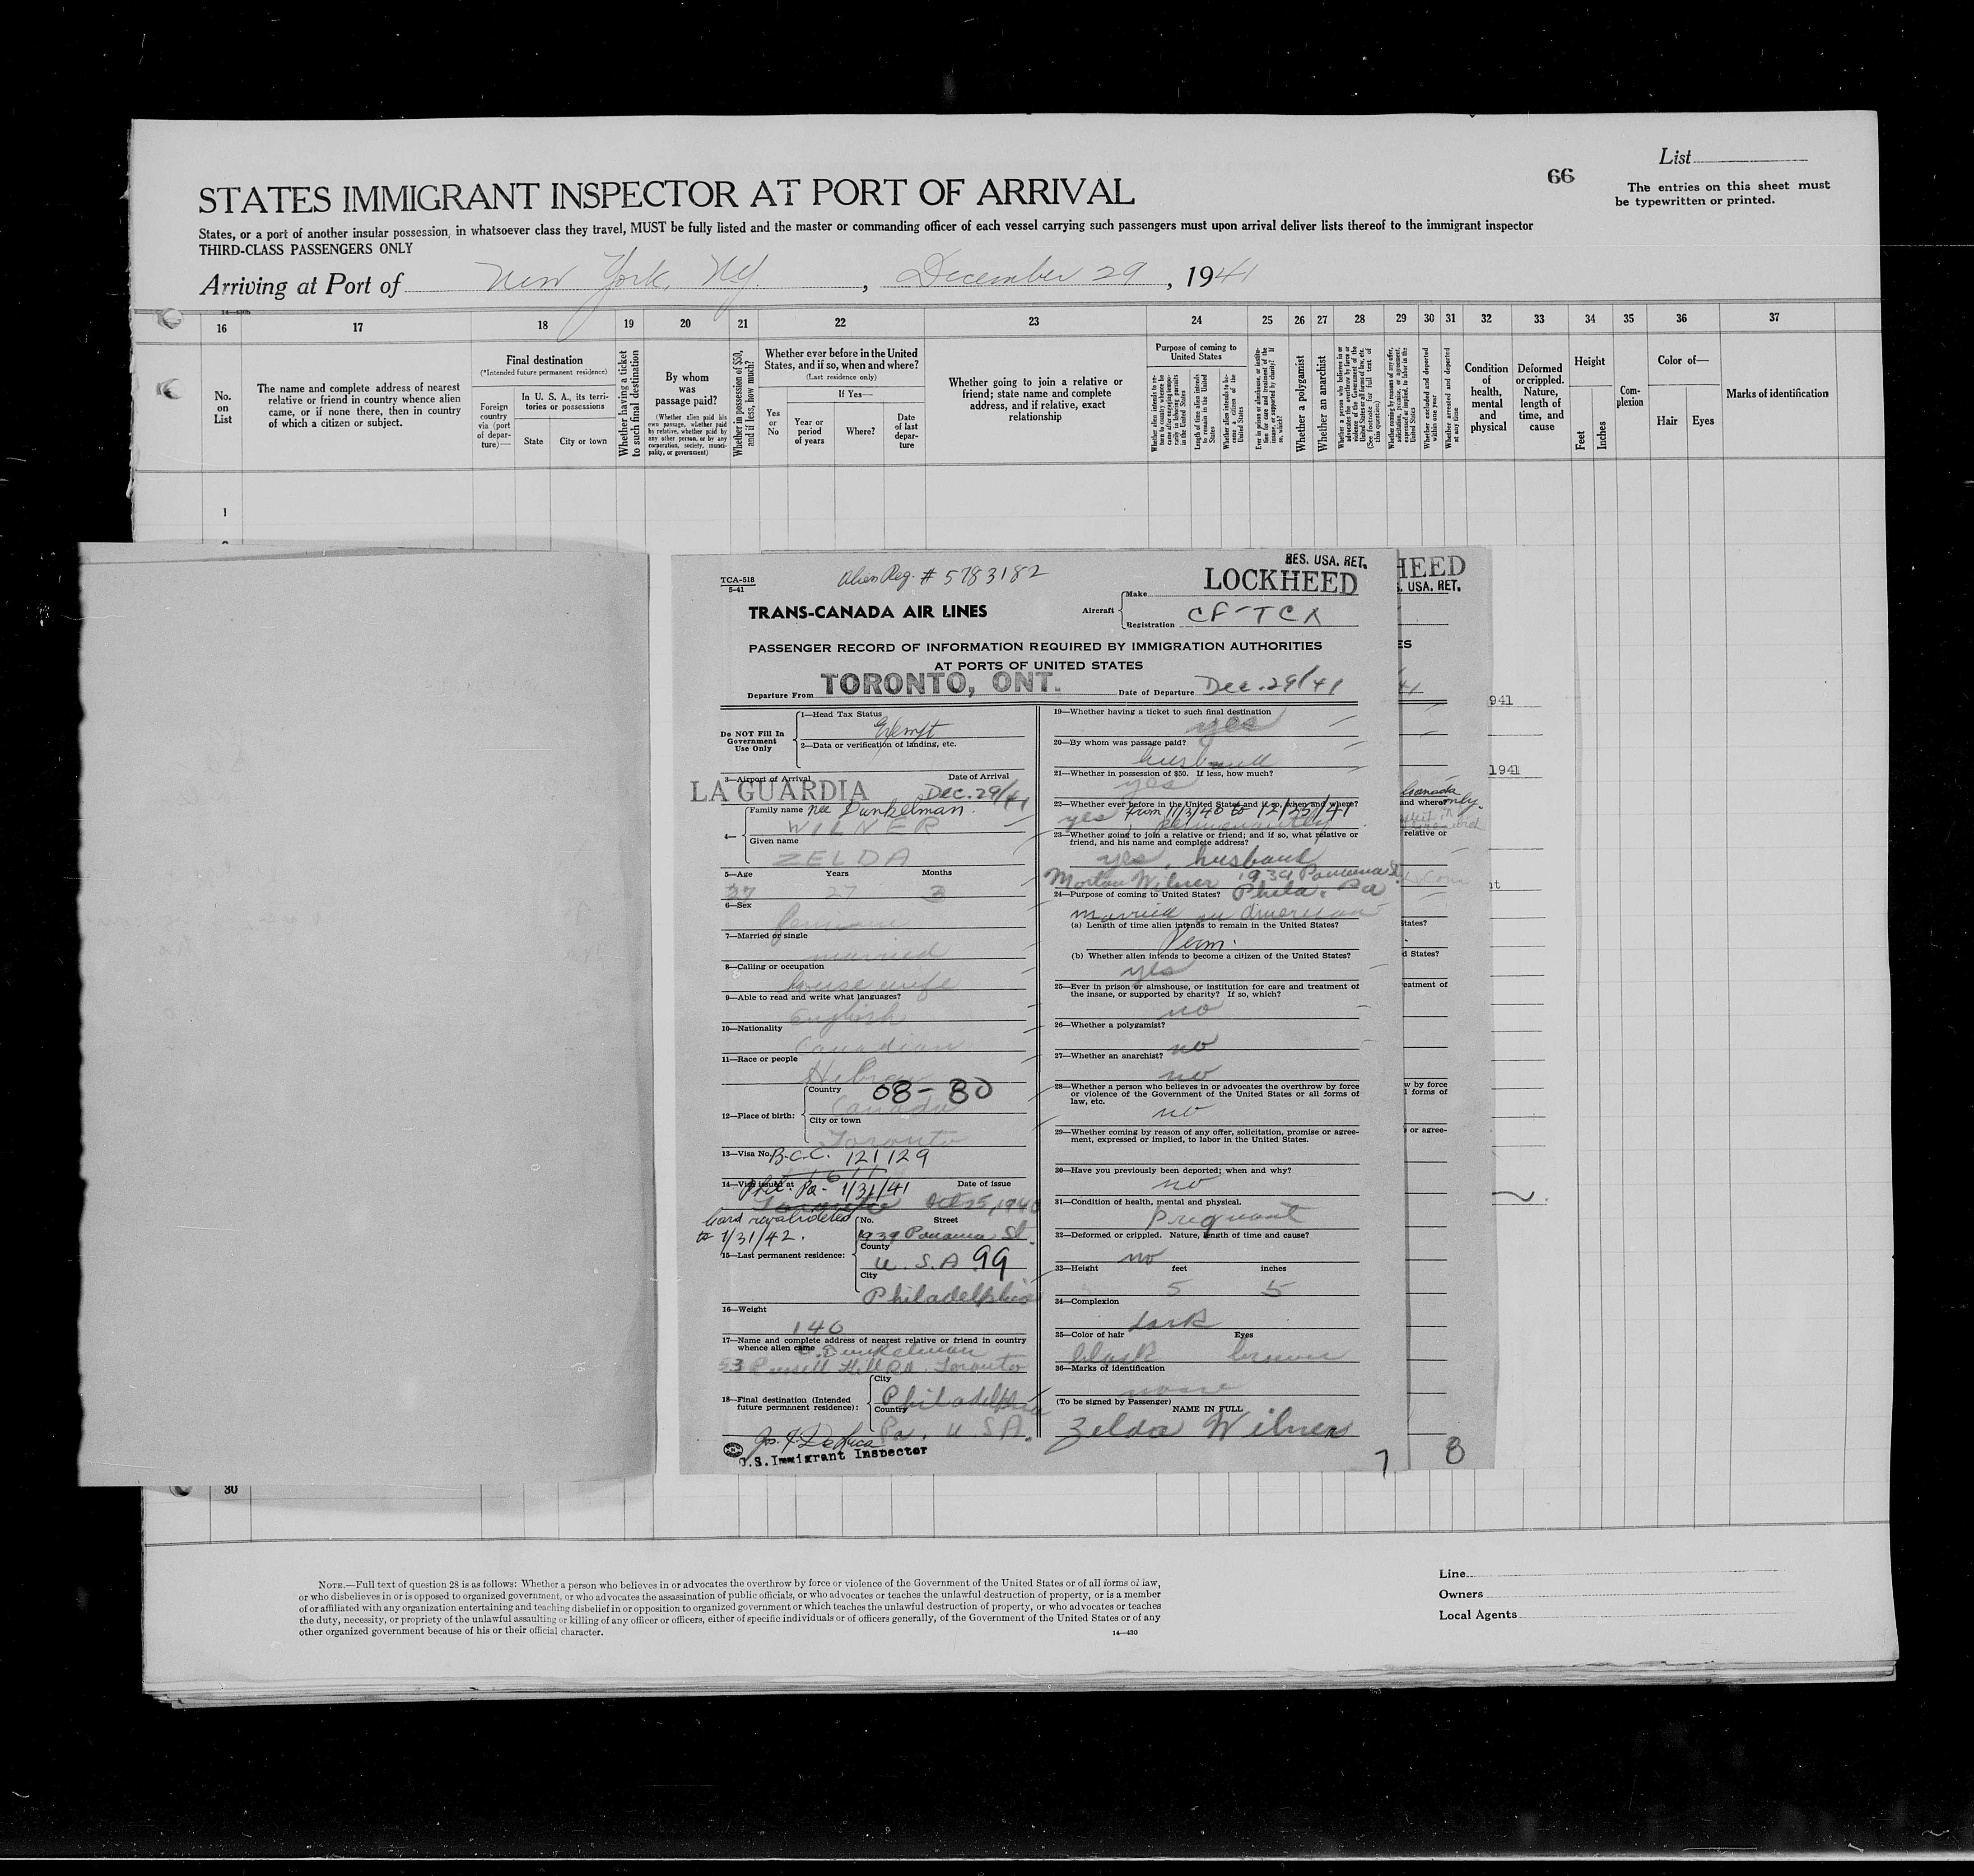 List
66
The entries on this sheet must
be typewritten or printed.
STATES IMMIGRANT INSPECTOR AT PORT OF ARRIVAL
States, or a port of another insular possession, in whatsoever class they travel, MUST be fully listed and the master or commanding officer of each vessel carrying such passengers must upon arrival deliver lists thereof to the immigrant inspector
THIRD-CLASS PASSENGERS ONLY
Arriving at Port of New York, NY. , December 29 , 1941
16 17 18 19 20 21 22 23 24 25 26 27 28 29 30 31 32 33 34 35 36 37
No.
on
List
The name and complete address of nearest
relative or friend in country whence alien
came, or if none there, then in country
of which a citizen or subject.
Final destination
(*Intended future permanent residence)
Foreign
country
via (port
of depar-
ture)—
In U. S. A., its terri-
tories or possessions
State
City or town
Whether having a ticket
to such final destination
By whom
was
passage paid?
(Whether alien paid his
own passage, whether paid
by relative, whether paid by
any other person, or by any
corporation, society, munici-
pality, or government)
Whether in possession of $50,
and if less, how much?
Whether ever before in the United
States, and if so, when and where?
(Last residence only)
Yes
or
No
If Yes—
Year or
period
of years
Where?
Date
of last
depar-
ture
Whether going to join a relative or
friend; state name and complete
address, and if relative, exact
relationship
Purpose of coming to
United States
Length of time alien intends
to remain in the United
States
Whether alien intends to be-
come a citizen of the
United States
Whether a polygamist
Whether an anarchist
Whether excluded and deported
within one year
Whether arrested and deported
at any time
Condition
of
health,
mental
and
physical
Deformed
or crippled.
Nature,
length of
time, and
cause
Height
Feet
Inches
Com-
plexion
Color of—
Hair
Eyes
Marks of identification
1
TCA-518
5-41
Alien Reg. # 5783182
RES. USA. RET.
LOCKHEED
TRANS-CANADA AIR LINES
Aircraft
Make
Registration CF-TCX
PASSENGER RECORD OF INFORMATION REQUIRED BY IMMIGRATION AUTHORITIES
AT PORTS OF UNITED STATES
Departure From TORONTO, ONT. Date of Departure Dec. 29/41
Do NOT Fill In
Government
Use Only
1—Head Tax Status
Exempt
2—Data or verification of landing, etc.
3—Airport of Arrival Date of Arrival
LA GUARDIA Dec. 29/41
4—
Family name nee Dunkelman.
WILNER
Given name
ZELDA
5—Age Years Months
27 27 3
6—Sex
7—Married or single
married
8—Calling or occupation
housewife
9—Able to read and write what languages?
English
10—Nationality
Canadian
11—Race or people
Hebrew
12—Place of birth:
Country 08-80
Canada
City or town
Toronto
13—Visa No. B.C.C. 121129
14—Visa issued at Date of issue
Phil. Pa- 1/31/41
Toronto Oct 25, 1940
Card revalidated
to 1/31/42.
15—Last permanent residence:
No. Street
1939 Panama St.
County
U.S.A 99
City
Philadelphia
16—Weight
140
17—Name and complete address of nearest relative or friend in country
whence alien came
Dunkelman
53 Russell Hill Rd. Toronto
18—Final destination (Intended
future permanent residence):
City
Philadelphia
Country
Pa. U.S.A.
Jos. J. DeLuca
U.S. Immigrant Inspector
19—Whether having a ticket to such final destination
yes
20—By whom was passage paid?
husband
21—Whether in possession of $50. If less, how much?
yes
22—Whether ever before in the United States and if so, when and where?
yes from 11/3/40 to 12/25/41
permanently
23—Whether going to join a relative or friend; and if so, what relative or
friend, and his name and complete address?
yes, husband
Morton Wilner 1939 Panama St
24—Purpose of coming to United States? Phila. Pa
married an American
(a) Length of time alien intends to remain in the United States?
Perm.
(b) Whether alien intends to become a citizen of the United States?
yes
25—Ever in prison or almshouse, or institution for care and treatment of
the insane, or supported by charity? If so, which?
no
26—Whether a polygamist?
no
27—Whether an anarchist?
no
28—Whether a person who believes in or advocates the overthrow by force
or violence of the Government of the United States or all forms of
law, etc.
no
29—Whether coming by reason of any offer, solicitation, promise or agree-
ment, expressed or implied, to labor in the United States.
30—Have you previously been deported; when and why?
no
31—Condition of health, mental and physical.
pregnant
32—Deformed or crippled. Nature, length of time and cause?
no
33—Height feet inches
5 5
34—Complexion
dark
35—Color of hair Eyes
black brown
36—Marks of identification
none
(To be signed by Passenger)
NAME IN FULL
Zelda Wilner
7
HEED
USA. RET.
ES
941
1941
Canada
and where only.
relative or
nt
States?
d States?
eatment of
w by force
l forms of
or agree-
8
30
NOTE.—Full text of question 28 is as follows: Whether a person who believes in or advocates the overthrow by force or violence of the Government of the United States or of all forms of law,
or who disbelieves in or is opposed to organized government, or who advocates the assassination of public officials, or who advocates or teaches the unlawful destruction of property, or is a member
of or affiliated with any organization entertaining and teaching disbelief in or opposition to organized government or which teaches the unlawful destruction of property, or who advocates or teaches
the duty, necessity, or propriety of the unlawful assaulting or killing of any officer or officers, either of specific individuals or of officers generally, of the Government of the United States or of any
other organized government because of his or their official character.
14—430
Line
Owners
Local Agents